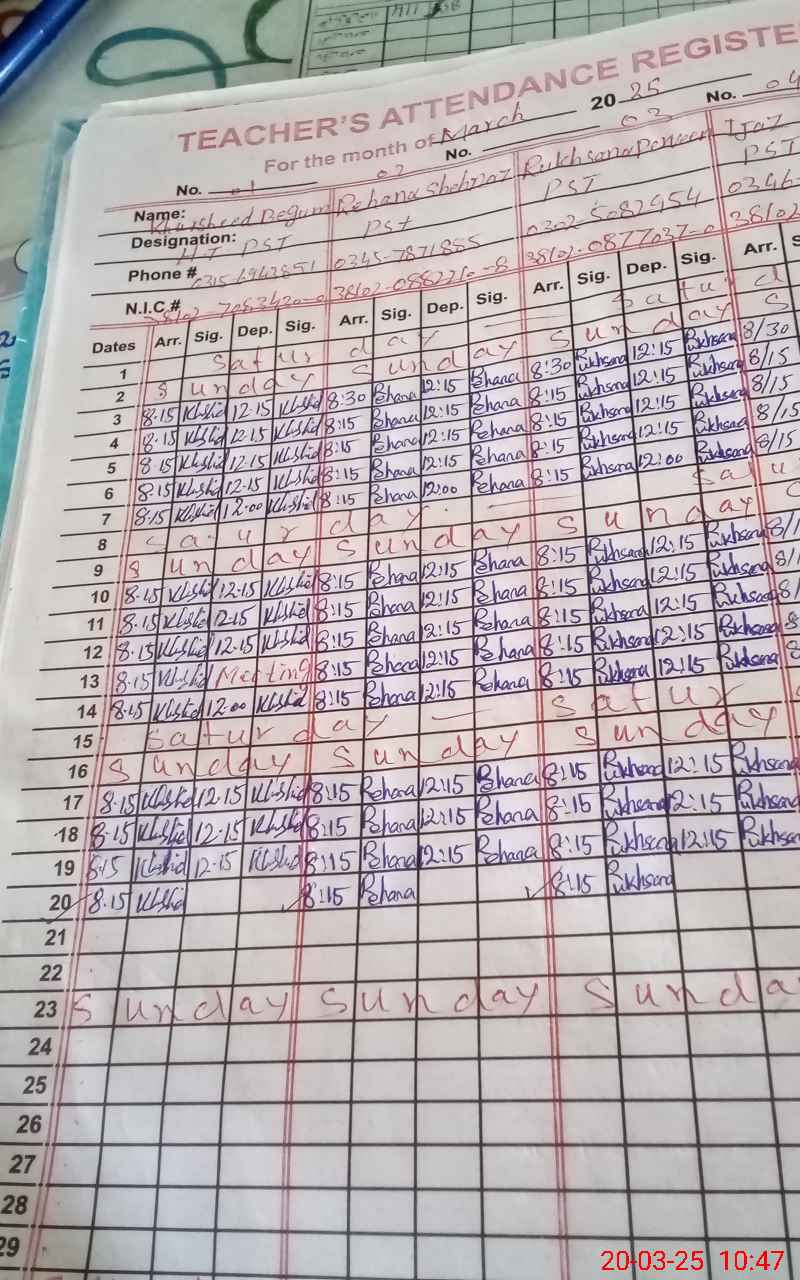 TEACHER'S ATTENDANCE REGISTE
For the month of March 2025
No. 01 No. 02 No. 03 No. 04
Name: Khursheed Begum Rehana Shehnaz Rukhsana Perveen Ijaz
Designation: HT PST PST PST PST
Phone # 0315-6943851 0345-7871885 0302-5082954 0346-
N.I.C.# 38102-0882210-8 38102-0877037-0 38102
Dates Arr. Sig. Dep. Sig. Arr. Sig. Dep. Sig. Arr. Sig. Dep. Sig. Arr. S
1 Saturday Saturd
2 Sunday Sunday Sunday S
3 8.15 Khshid 12.15 Khshid 8:30 Rehana 12:15 Rehana 8:30 Rukhsana 12:15 Rukhsana 8/30
4 8.15 Khshid 12.15 Khshid 8:15 Rehana 12:15 Rehana 8:15 Rukhsana 12:15 Rukhsana 8/15
5 8.15 Khshid 12.15 Khshid 8:15 Rehana 12:15 Rehana 8:15 Rukhsana 12:15 Rukhsana 8/15
6 8.15 Khshid 12.15 Khshid 8:15 Rehana 12:15 Rehana 8:15 Rukhsana 12:15 Rukhsana 8/15
7 8.15 Khshid 12.00 Khshid 8:15 Rehana 12:00 Rehana 8:15 Rukhsana 12:00 Rukhsana 8/15
8 Saturday Satu
9 Sunday Sunday Sunday
10 8.15 Khshid 12.15 Khshid 8:15 Rehana 12:15 Rehana 8:15 Rukhsana 12:15 Rukhsana 8/1
11 8.15 Khshid 12.15 Khshid 8:15 Rehana 12:15 Rehana 8:15 Rukhsana 12:15 Rukhsana 8/1
12 8.15 Khshid 12.15 Khshid 8:15 Rehana 12:15 Rehana 8:15 Rukhsana 12:15 Rukhsana 8/
13 8.15 Khshid Meeting 8:15 Rehana 12:15 Rehana 8:15 Rukhsana 12:15 Rukhsana 8
14 8.15 Khshid 12.00 Khshid 8:15 Rehana 12:15 Rehana 8:15 Rukhsana 12:15 Rukhsana 8
15 Saturday Satur
16 Sunday Sunday Sunday
17 8.15 Khshid 12.15 Khshid 8:15 Rehana 12:15 Rehana 8:15 Rukhsana 12:15 Rukhsana
18 8.15 Khshid 12.15 Khshid 8:15 Rehana 12:15 Rehana 8:15 Rukhsana 12:15 Rukhsana
19 8.15 Khshid 12.15 Khshid 8:15 Rehana 12:15 Rehana 8:15 Rukhsana 12:15 Rukhsana
20 8.15 Khshid 8:15 Rehana 8:15 Rukhsana
21
22
23 Sunday Sunday Sunda
24
25
26
27
28
29
20-03-25 10:47